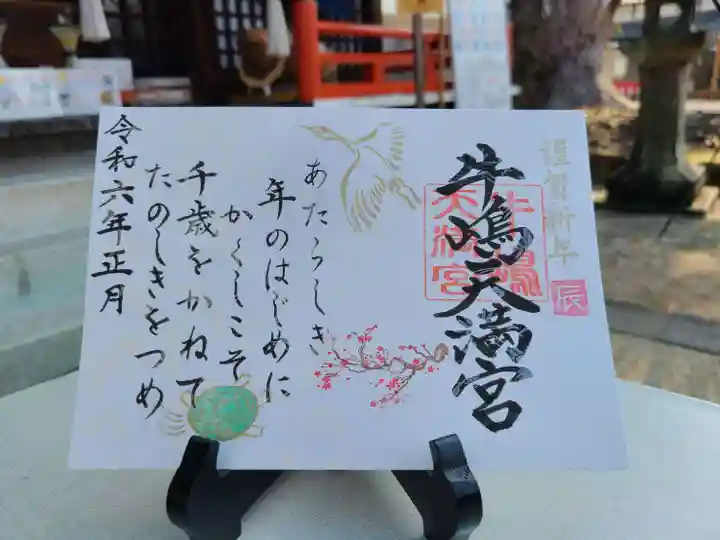 謹賀新年
辰
牛嶋天満宮
牛嶋
天満宮
あたらしき
年のはじめに
かくしこそ
千歳をかねて
たのしきをつめ
令和六年正月